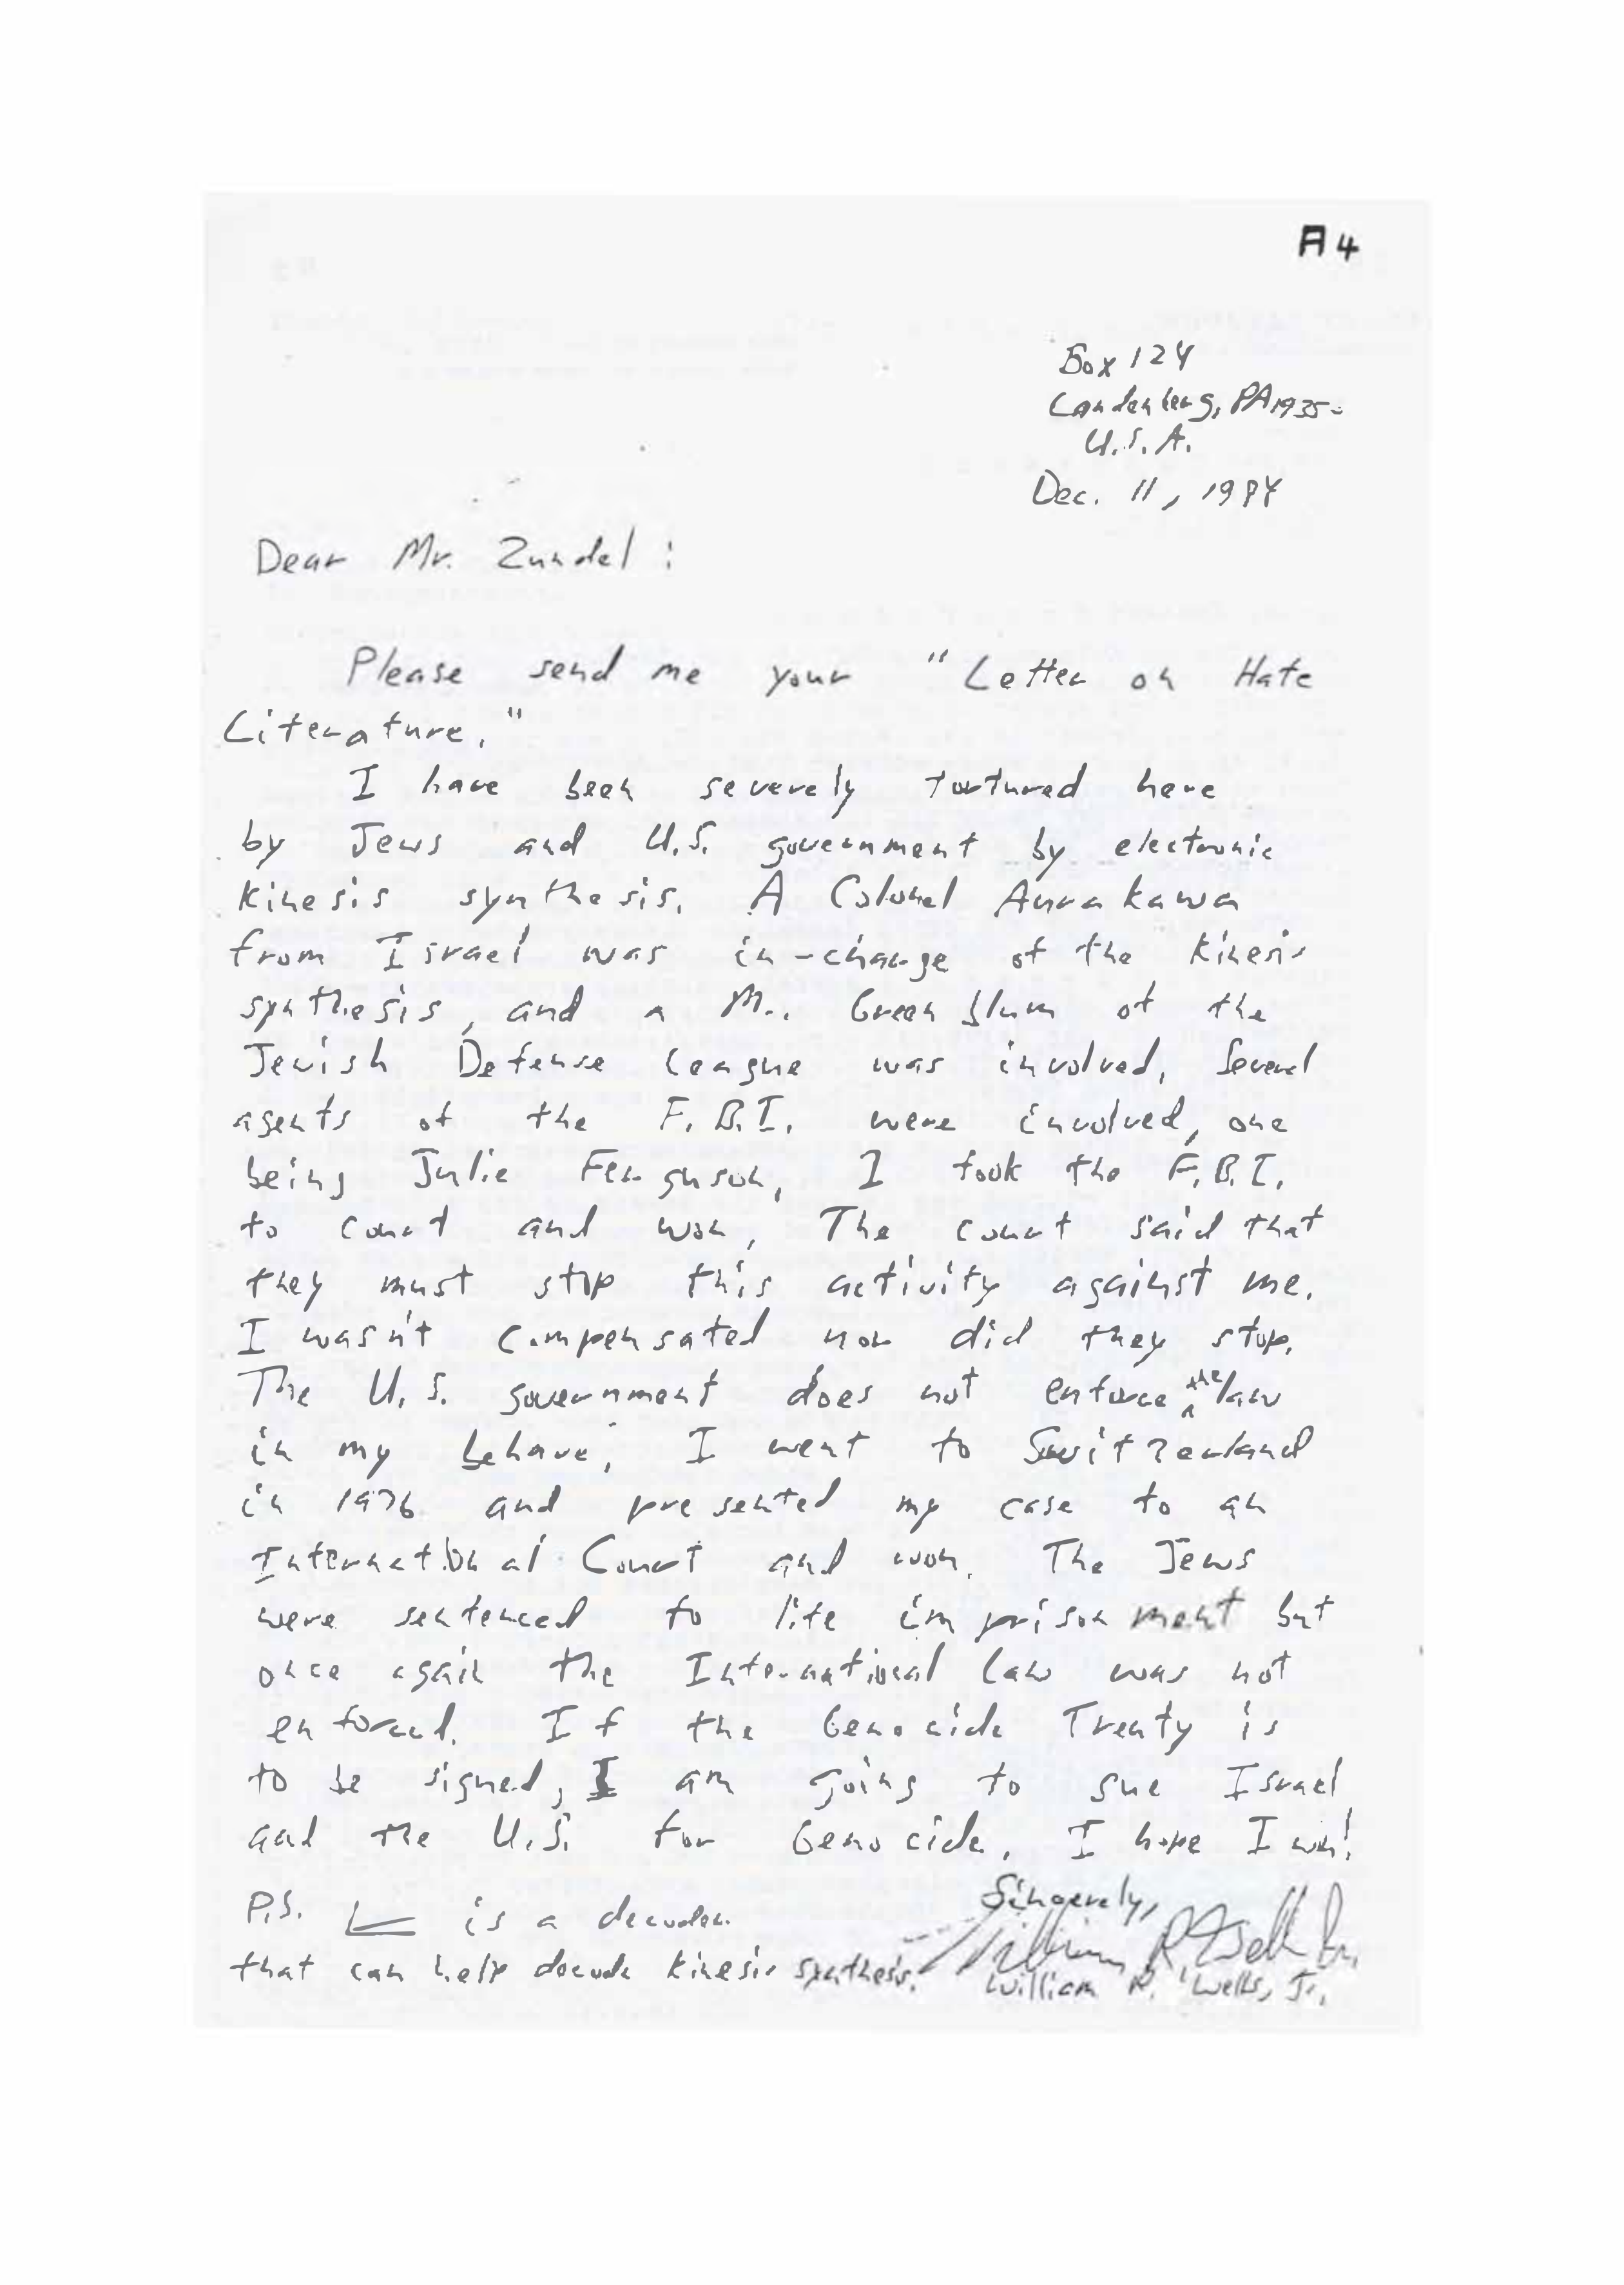 A4
Box 124
Landenberg, PA 1935-
U.S.A.
Dec. 11, 1984
Dear Mr. Zundel:
Please send me your "Letter on Hate
Literature."
I have been severely tortured here
by Jews and U.S. government by electronic
kinesis synthesis. A Colonel Aurakawa
from Israel was in-charge of the kinesis
synthesis, and a Mr. Greenblum of the
Jewish Defense League was involved. Several
agents of the F.B.I. were involved, one
being Julie Ferguson. I took the F.B.I.
to court and won. The court said that
they must stop this activity against me.
I wasn't compensated nor did they stop.
The U.S. government does not enforce the law
in my behave. I went to Switzerland
in 1976 and presented my case to an
International Court and won. The Jews
were sentenced to life imprisonment but
once again the International Law was not
enforced. If the Genocide Treaty is
to be signed, I am going to sue Israel
and the U.S. for Genocide. I hope I win!
P.S. is a decoder
that can help decode kinesis synthesis.
Sincerely,
William R. Wells Jr.
William R. Wells, Jr.